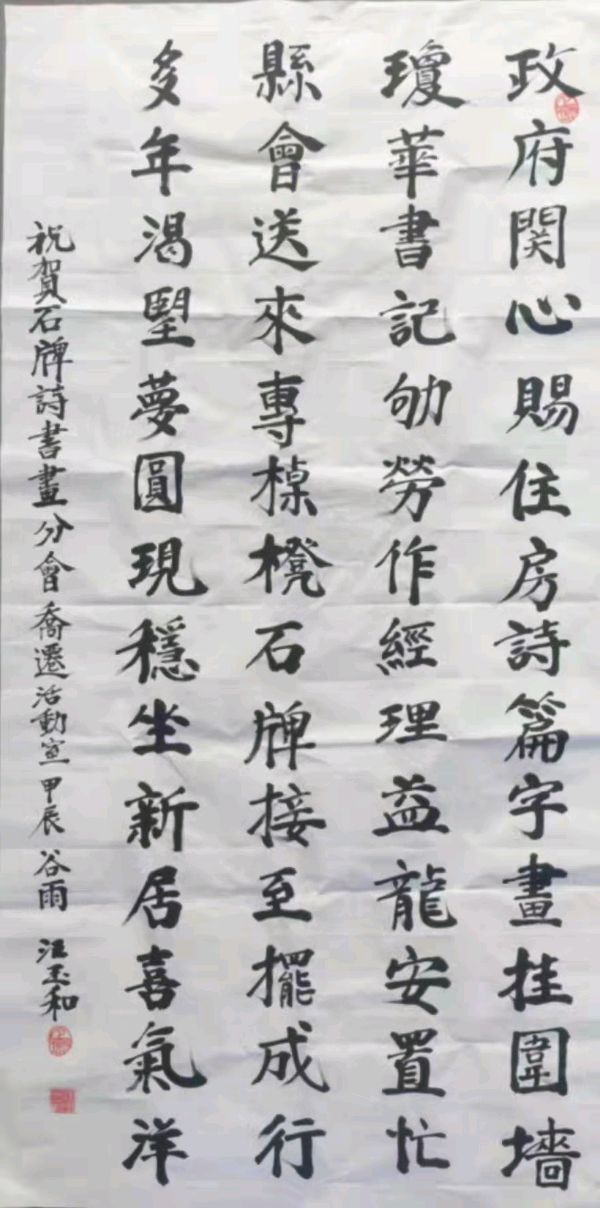 政府関心賜住房詩篇字畫挂圍墻
瓊華書記劬勞作經理益龍安置忙
縣會送來專槕櫈石牌接至擺成行
多年渴朢夢圓現穩坐新居喜氣洋
祝賀石牌詩書畫分會喬遷活動 甲辰谷雨 汪玉和